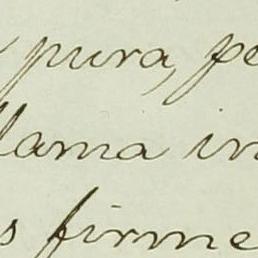 pura, pe
llama in
s firme